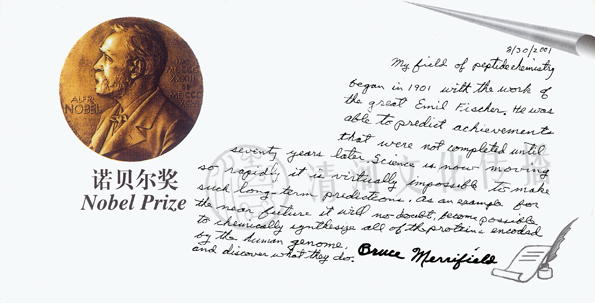 ALFR.
NOBEL
诺贝尔奖
Nobel Prize
8/30/2001
My field of peptide chemistry
began in 1901 with the work of
the great Emil Fischer. He was
able to predict achievements
that were not completed until
seventy years later. Science is now moving
so rapidly it is virtually impossible to make
such long-term predictions. As an example for
the near future it will no doubt, become possible
to chemically synthesize all of the proteins encoded
by the human genome,
and discover what they do.
Bruce Merrifield